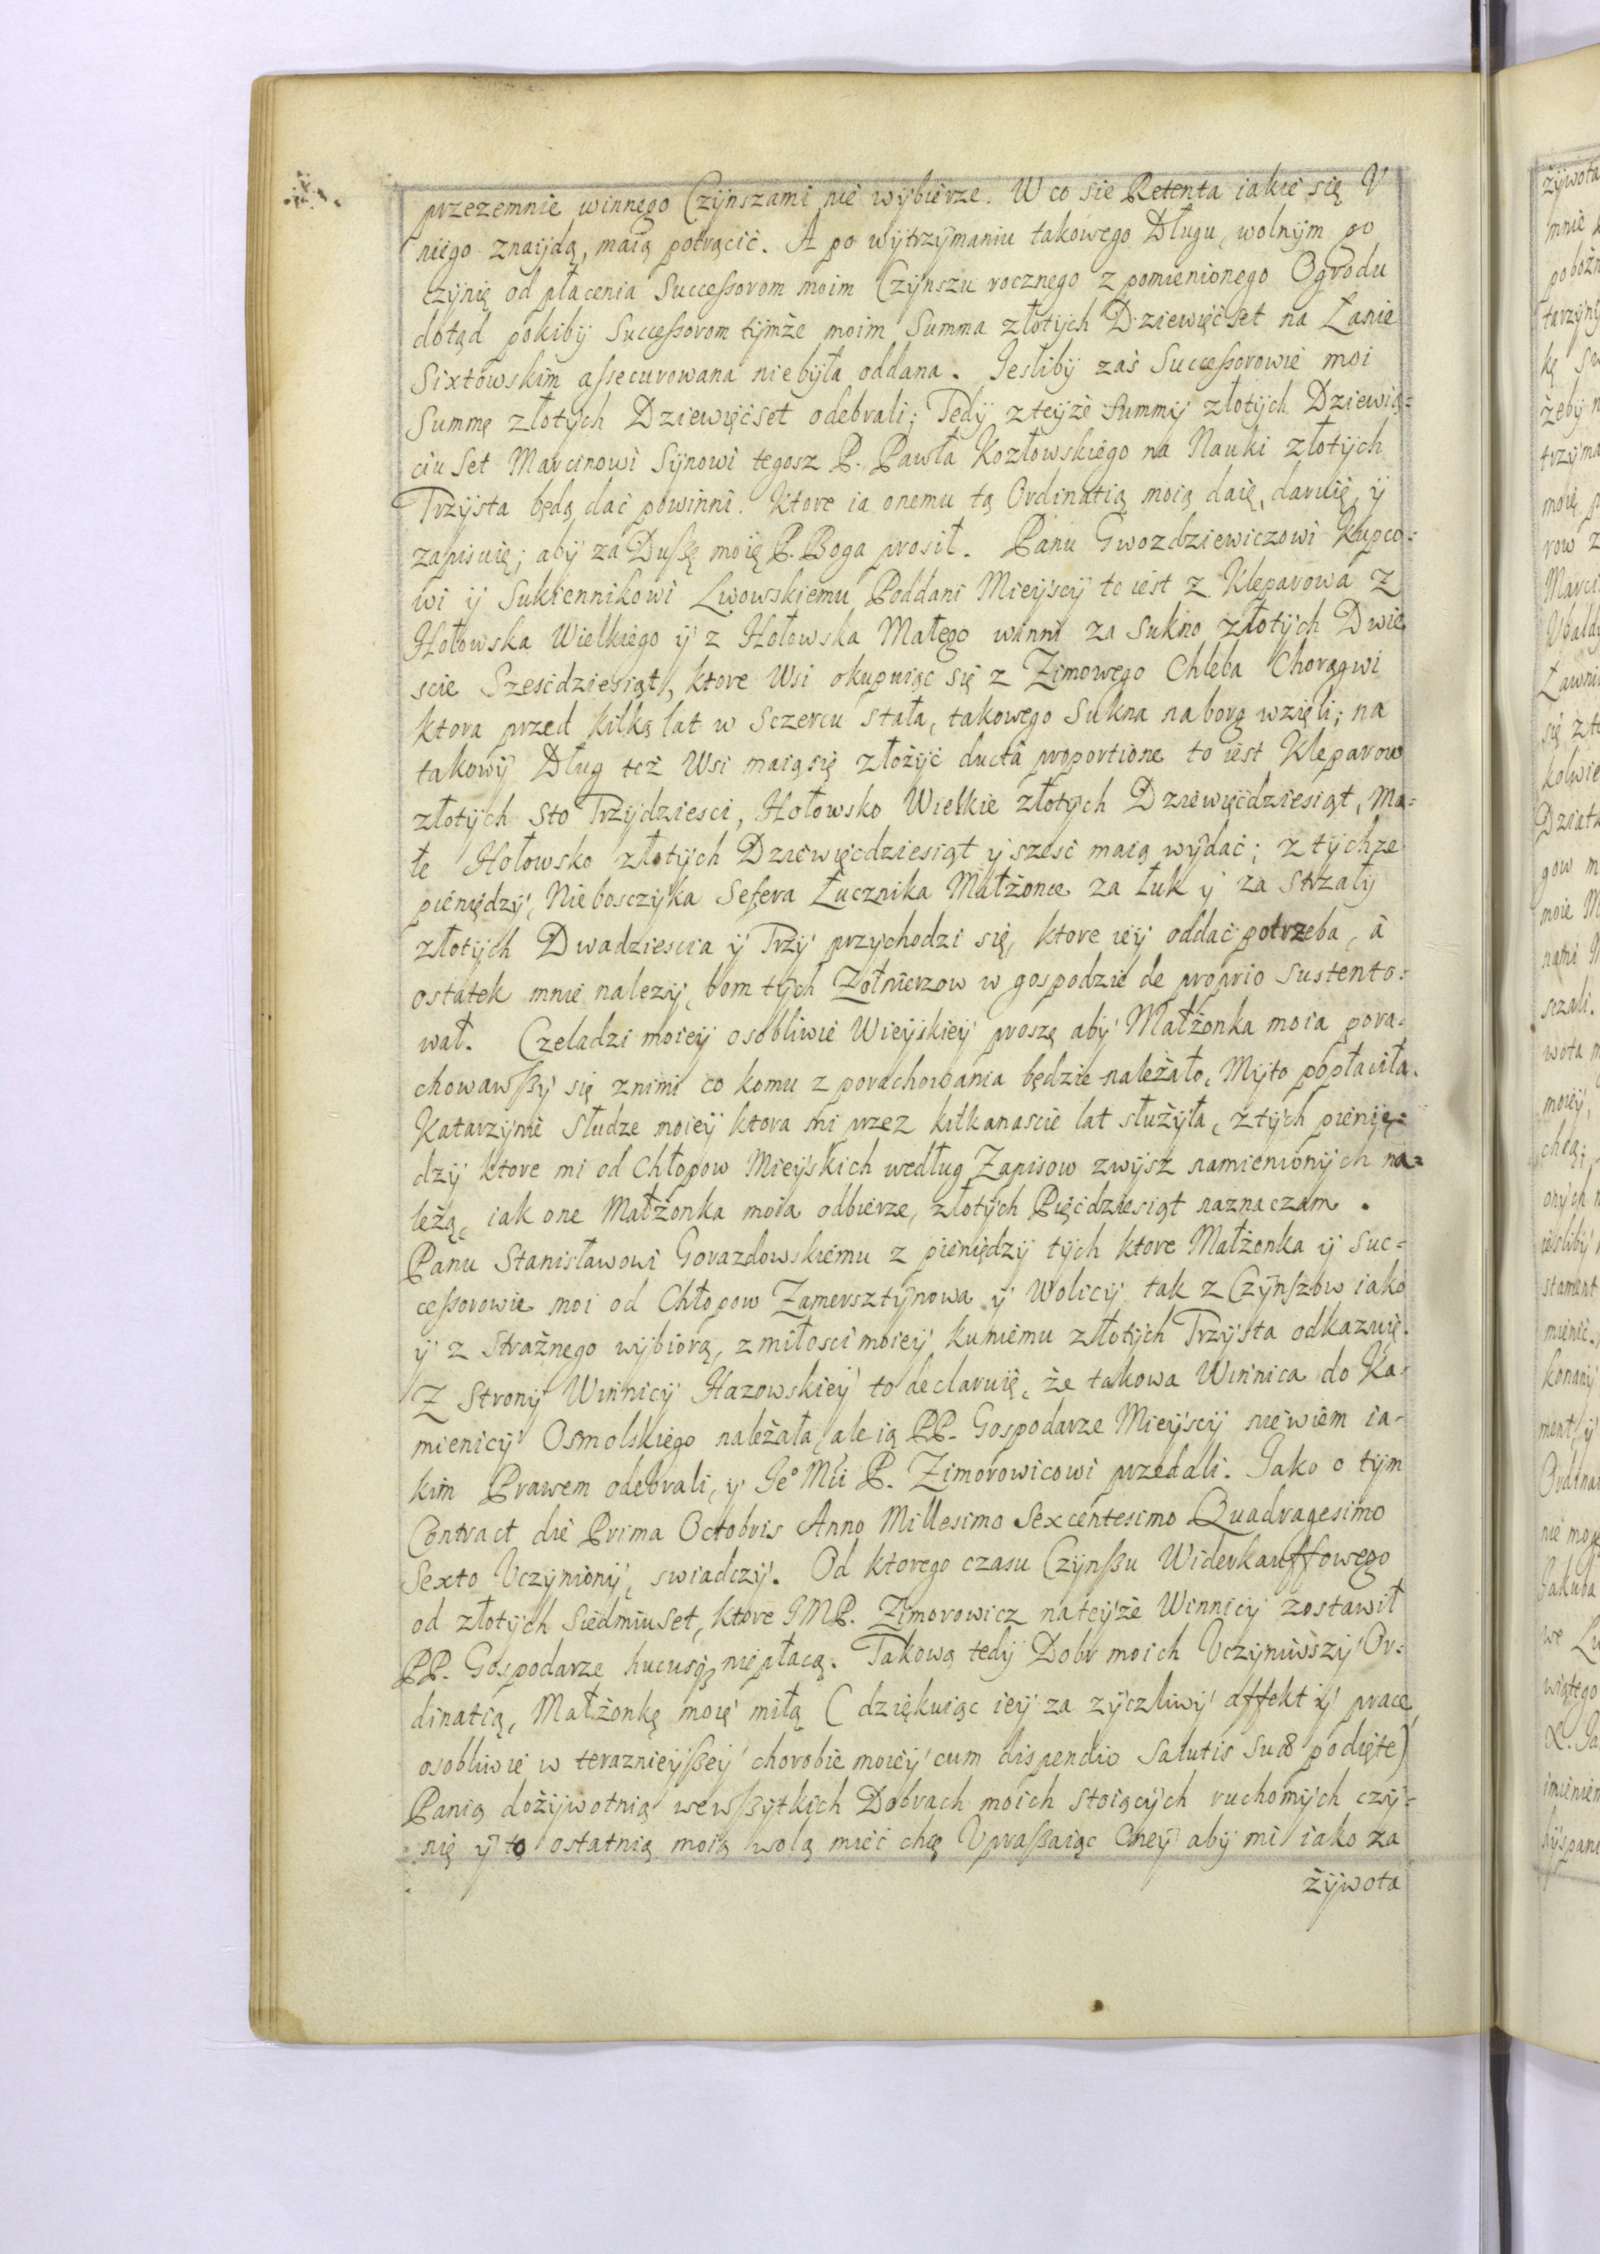 przezemnie winnego Czynszami nie wybierze. W co sie Retenta iakie się V
niego znaydą, maią potrącic. A po wytrzymaniu takowego Długu, wolnym go
czynię od płacenia Successorom moim Czynszu rocznego z pomienionego Ogrodu
dotąd pokiby Successorom tymże moim Summa złotych Dziewięćset na Łanie
Sixtowskim assecurowana niebyła oddana. Iesliby zaś Successorowie moi
Summę złotych Dziewięćset odebrali; Tedy zteyże Summy złotych Dziewią=
ciu Set Marcinowi Synowi tegosz P. Pawła Kozłowskiego na Nauki złotych
Trzysta będą dać powinni. Ktore ia onemu tą Ordinatią moią daię, daruię, y
zapisuię; aby za Dußę moię P. Boga prosił. Panu Gwozdziewiczowi Kupco=
wi y Sukiennikowi Lwowskiemu Poddani Mieyscy to iest z Kleparowa z
Hołowska Wielkiego y z Hołowska Małego winni za Sukno złotych Dwie
scie Szescdziesiąt, ktore Wsi okupuiąc się z Zimowego Chleba Chorągwi
ktora przed kilką lat w Sczercu stała, takowego Sukna naborg wzięli; na
takowy Dług też Wsi maią się złożyć ductâ proportione to iest Kleparow
złotych Sto Trzydziesci, Hołowsko Wielkie złotych Dziewięćdziesiąt, Ma=
łe Hołowsko złotych Dziewięcdziesiąt y szesc maią wydać; z tychże
pieniędzy, Nieboszczyka Sefera Łucznika Małżonce za Łuk y za Strzały
złotych Dwadziescia y Trzy przychodzi się, ktore iey oddać potrzeba, à
ostatek mnie nalezy, bom tych Żołnierzow w gospodzie de proprio sustento=
wał. Czeladzi moiey osobliwie Wieyskiey proszę aby Małżonka moia pora=
chowawßy się znimi co komu z porachowania będzie należało, Myto popłaciła.
Katarzynie Słudze moiey ktora mi przez kilkanascie lat służyła, z tych pienię=
dzy ktore mi od Chłopow Mieyskich według Zapisow zwysz namienionych na=
leżą, iak one Małżonka moia odbierze, złotych Pięćdziesiąt naznaczam.
Panu Stanisławowi Gorazdowskiemu z pieniędzy tych ktore Małżonka y Suc=
cessorowie moi od Chłopow Zamersztynowa y Wolicy tak z Czynszow iako
y z Strażnego wybiorą, z miłosci moiey kuniemu złotych Trzysta odkazuię.
Z Strony Winnicy Hazowskiey to declaruię, że takowa Winnica do Ka=
mienicy Osmolskiego należała, ale ią PP. Gospodarze Mieyscy niewiem ia=
kim Prawem odebrali, y Ieº Mći P. Zimorowicowi przedali. Iako o tym
Contract die Prima Octobris Anno Millesimo Sexcentesimo Quadragesimo
Sexto Vczyniony, swiadczy. Od ktorego czasu Czynßu Widerkauffowego
od złotych Siedmiuset, ktore IMP. Zimorowicz nateyże Winnicy zostawił
PP. Gospodarze hucusq3 niepłacą. Takową tedy Dobr moich Vczyniwszy Or=
dinatią, Małżonkę moię miłą (dziękuiąc iey za zyczliwy affekt y prace
osobliwie w teraznieyßey chorobie moiey cum dispendio salutis suæ podięte)
Panią dożywotnią wewßytkich Dobrach moich stoiących ruchomych czy=
nię y tę ostatnią moią wolą mieć chę Vpraßaiąc Oney aby mi iako za
żywota